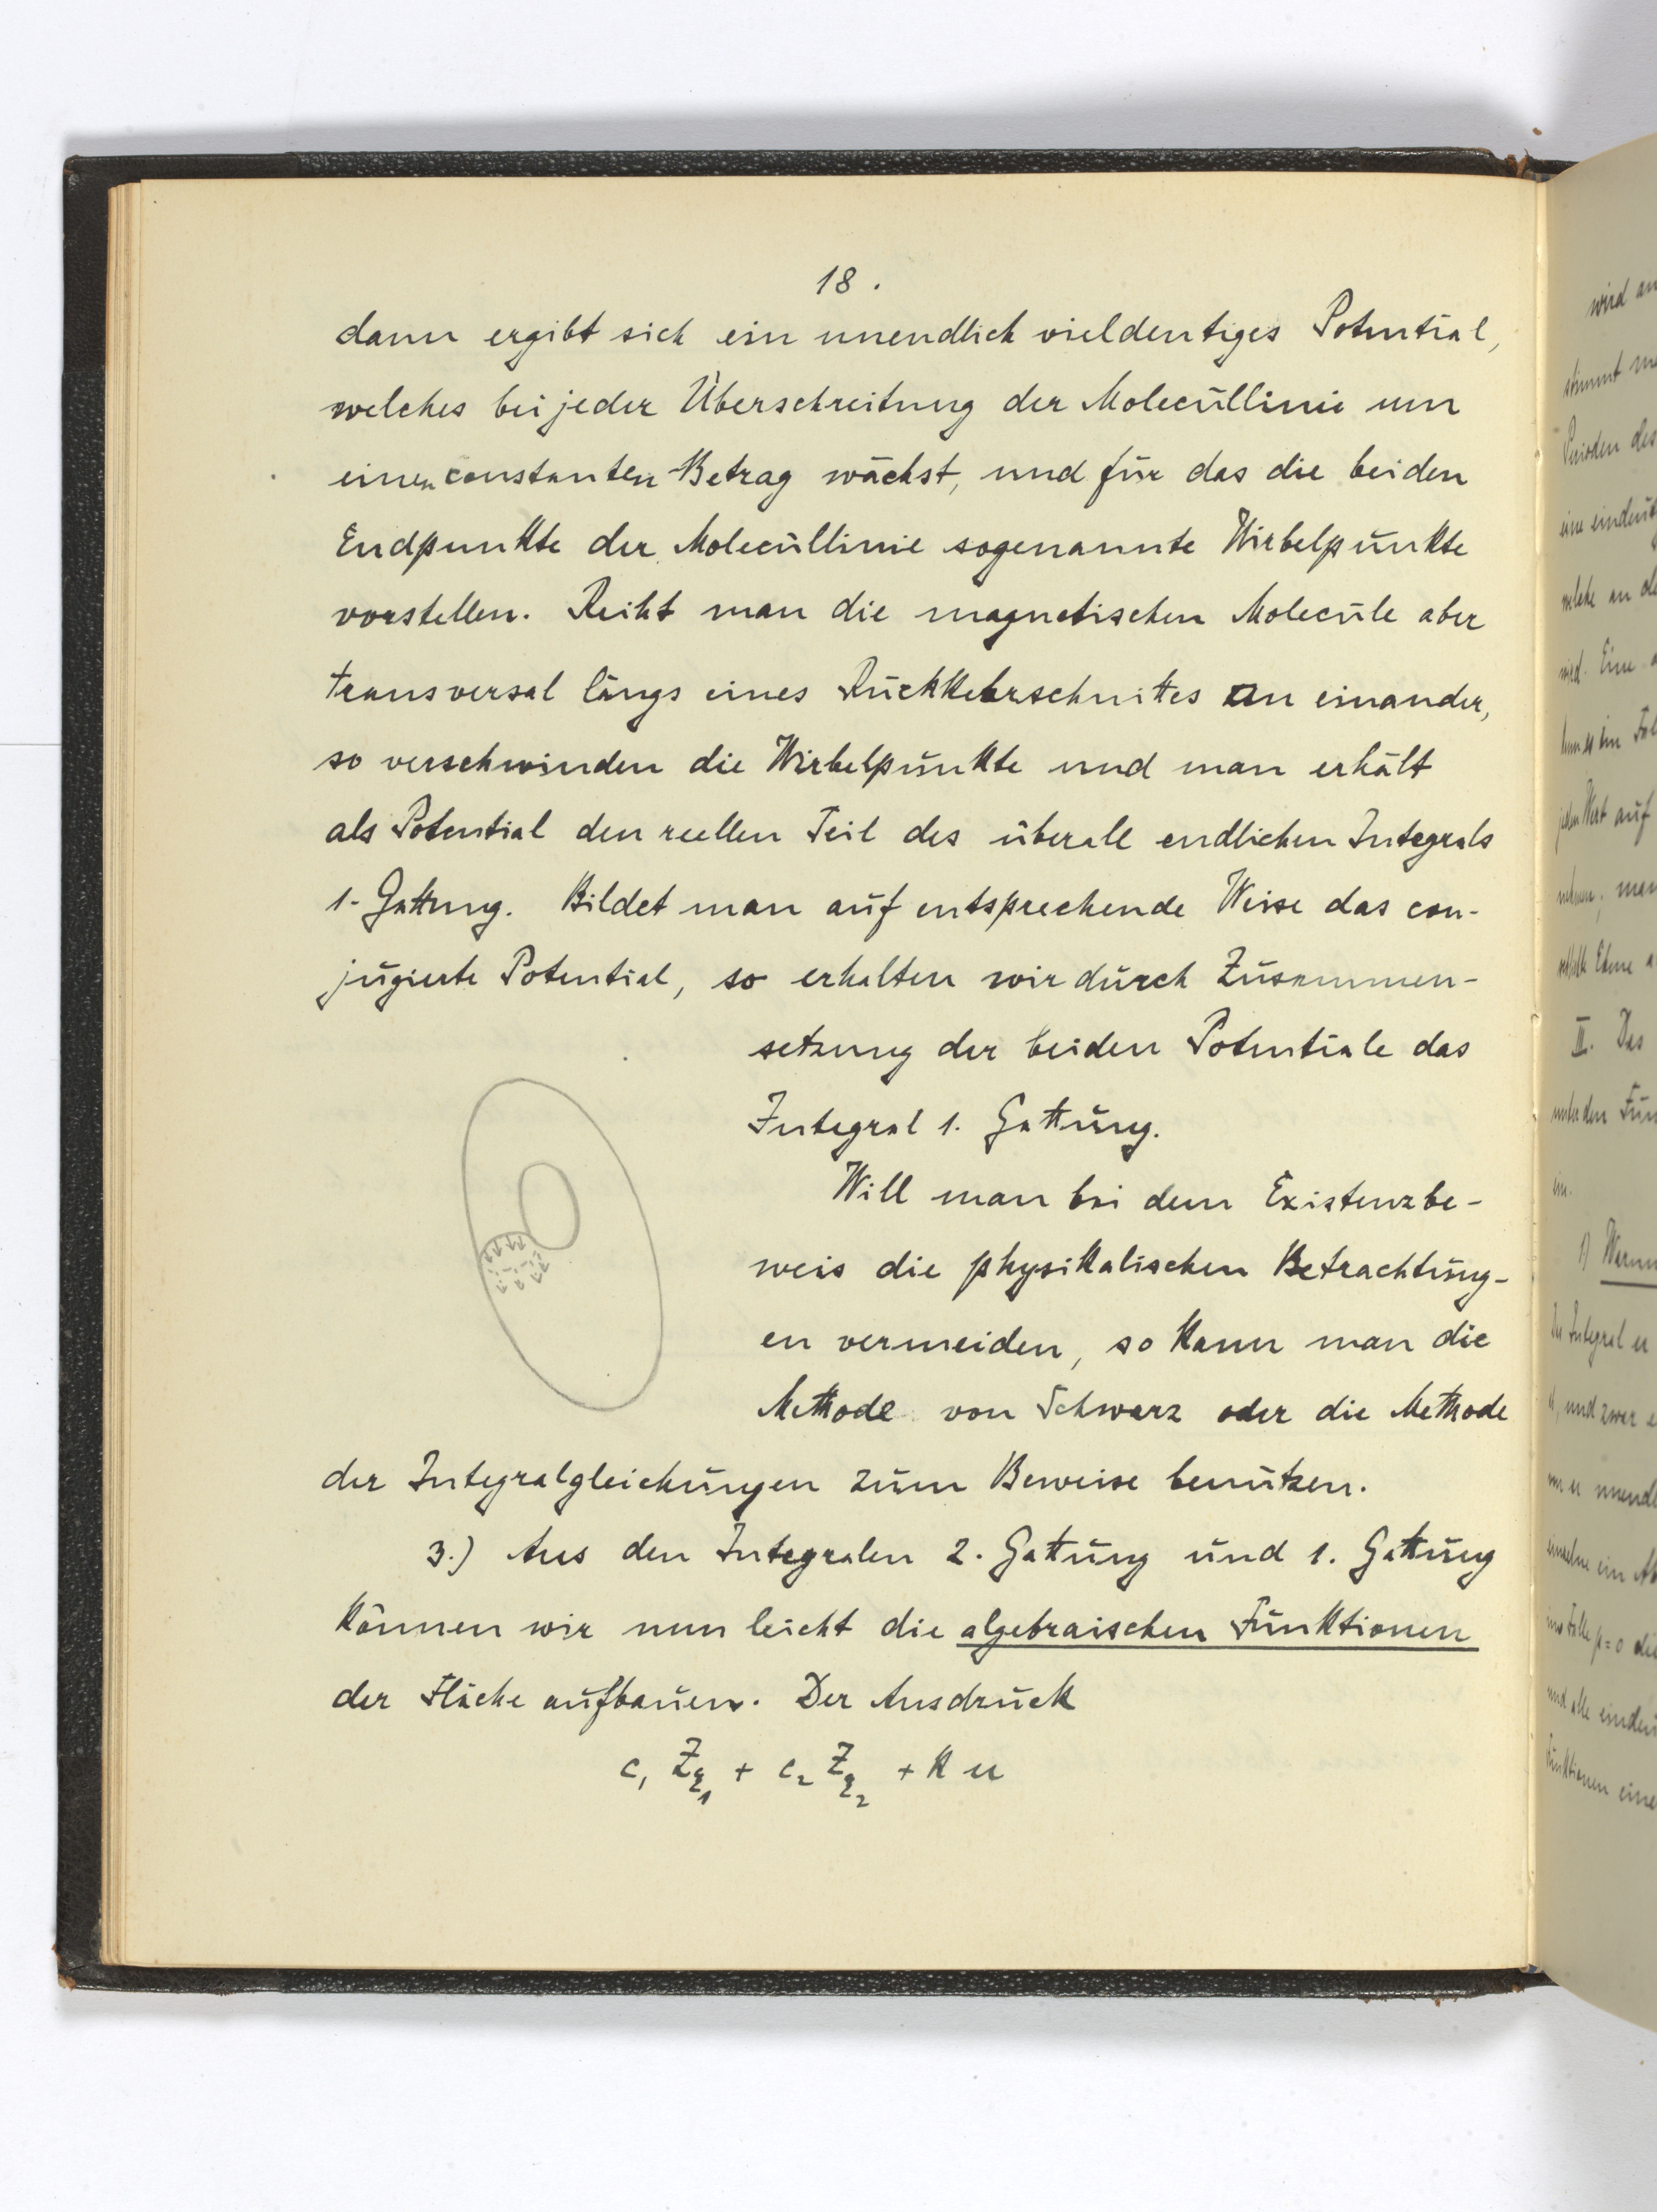 18.
dann ergibt sich ein unendlich vieldeutiges Potential,
welches bei jeder Überschreitung der Molecüllinie um
einen constanten Betrag wächst, und für das die beiden
Endpunkte der Molecüllinie sogenannte Wirbelpunkte
vorstellen. Reiht man die magnetischen Molecüle aber
transversal längs eines Rückkehrschnittes an einander,
so verschwinden die Wirbelpunkte und man erhält
als Potential den reellen Teil des überall endlichen Integrals
1. Gattung. Bildet man auf entsprechende Weise das con-
jugierte Potential, so erhalten wir durch Zusammen-
setzung der beiden Potentiale das
Integral 1. Gattung.
Will man bei dem Existenzbe-
weis die physikalischen Betrachtung-
en vermeiden, so kann man die
Methode von Schwarz oder die Methode
der Integralgleichungen zum Beweise benutzen.
3.) Aus den Integralen 2. Gattung und 1. Gattung
können wir nun leicht die algebraischen Funktionen
der Fläche aufbauen. Der Ausdruck
c₁ Z_ξ₁ + c₂ Z_ξ₂ + k u
wird
stimmt
Perioden des
eine
welche an
Eine
jeden Wert auf
nehmen, man
Ebene
II. Das
unter den
1) Warum
Integral
und zwar
ein
Falle p = 0 die
und alle
Funktionen eine